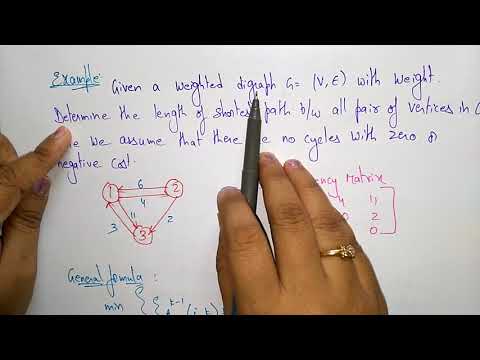 Example: Given a weighted digraph G= (V, E) with weight.
Determine the length of shortest path b/w all pair of vertices in G
we assume that there no cycles with zero or
negative cost.
matrix
6
1 2
4
4 11
11 2
0 2
3
3
0
General formula :
min { { k-1 (i, k)